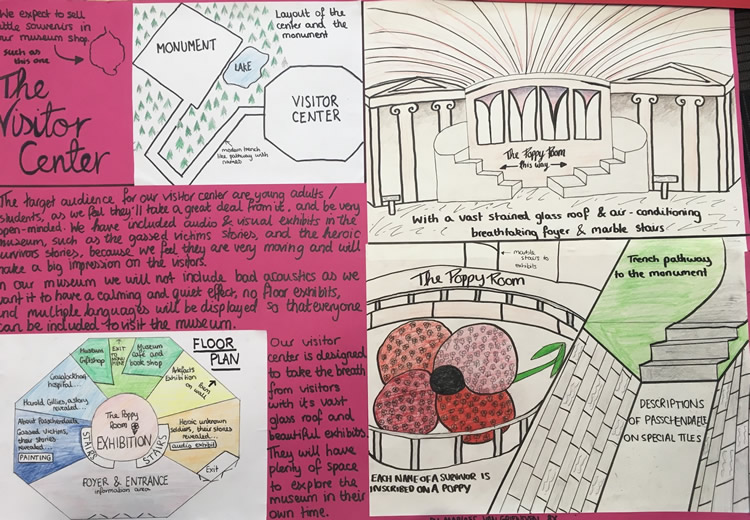 We expect to sell
little souvenirs in
our museum shop.
such as
this one
The
Visitor
Center
Layout of the
center and the
monument
MONUMENT
LAKE
VISITOR
CENTER
modern trench
like pathway with
names
The Poppy Room
this way
With a vast stained glass roof & air-conditioning
breathtaking foyer & marble stairs
The target audience for our visitor center are young adults /
students, as we feel they'll take a great deal from it, and be very
open-minded. We have included audio & visual exhibits in the
museum, such as the gassed victims stories, and the heroic
survivors stories, because we feel they are very moving and will
make a big impression on the visitors.
In our museum we will not include bad acoustics as we
want it to have a calming and quiet effect, no floor exhibits,
and multiple languages will be displayed so that everyone
can be included to visit the museum.
FLOOR
PLAN
Museum
Giftshop
EXIT
TO
Museum
café and
book shop
Craiglockhart
hospital...
Artefacts
Exhibition
on wall
Harold Gillies, a story
revealed...
About Passchendaele
Gassed victims,
their stories
revealed...
PAINTING
The Poppy
Room
EXHIBITION
STAIRS
STAIRS
Heroic unknown
soldiers, their stories
revealed...
audio exhibit
Exit
FOYER & ENTRANCE
information area
Our visitor
center is designed
to take the breath
from visitors
with it's vast
glass roof and
beautiful exhibits.
They will have
plenty of space
to explore the
museum in their
own time.
marble
stairs to
exhibits
The Poppy Room
EACH NAME OF A SURVIVOR IS
INSCRIBED ON A POPPY
Trench pathway
to the monument
DESCRIPTIONS
OF PASSCHENDAELE
ON SPECIAL TILES
BY